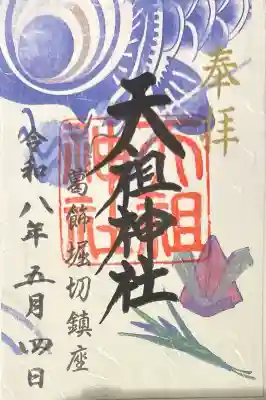 奉拝
天祖神社
天祖神社
葛飾堀切鎮座
令和八年五月四日